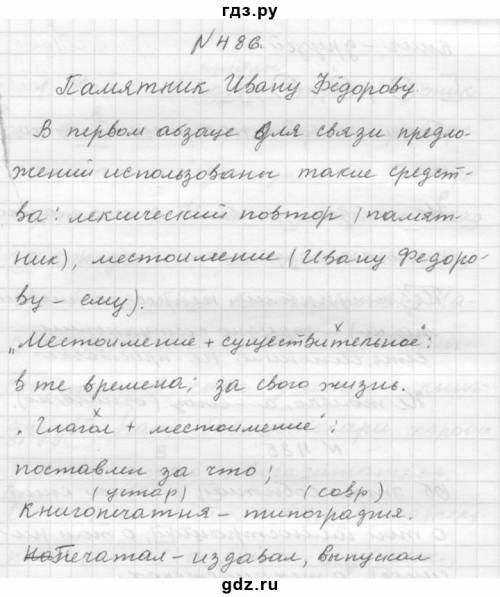 гдз.ру
№486.
Памятник Ивану Фёдорову
В первом абзаце для связи предло-
жений использованы такие средст-
ва: лексический повтор (памят-
ник), местоимение (Ивану Федоро-
ву - ему).
„Местоимение + существительное“:
в те времена; за свою жизнь.
„Глагол + местоимение“:
поставлен за что;
(устар) (совр)
Книгопечатня - типография.
Печатал - издавал, выпускал
gdz.ru